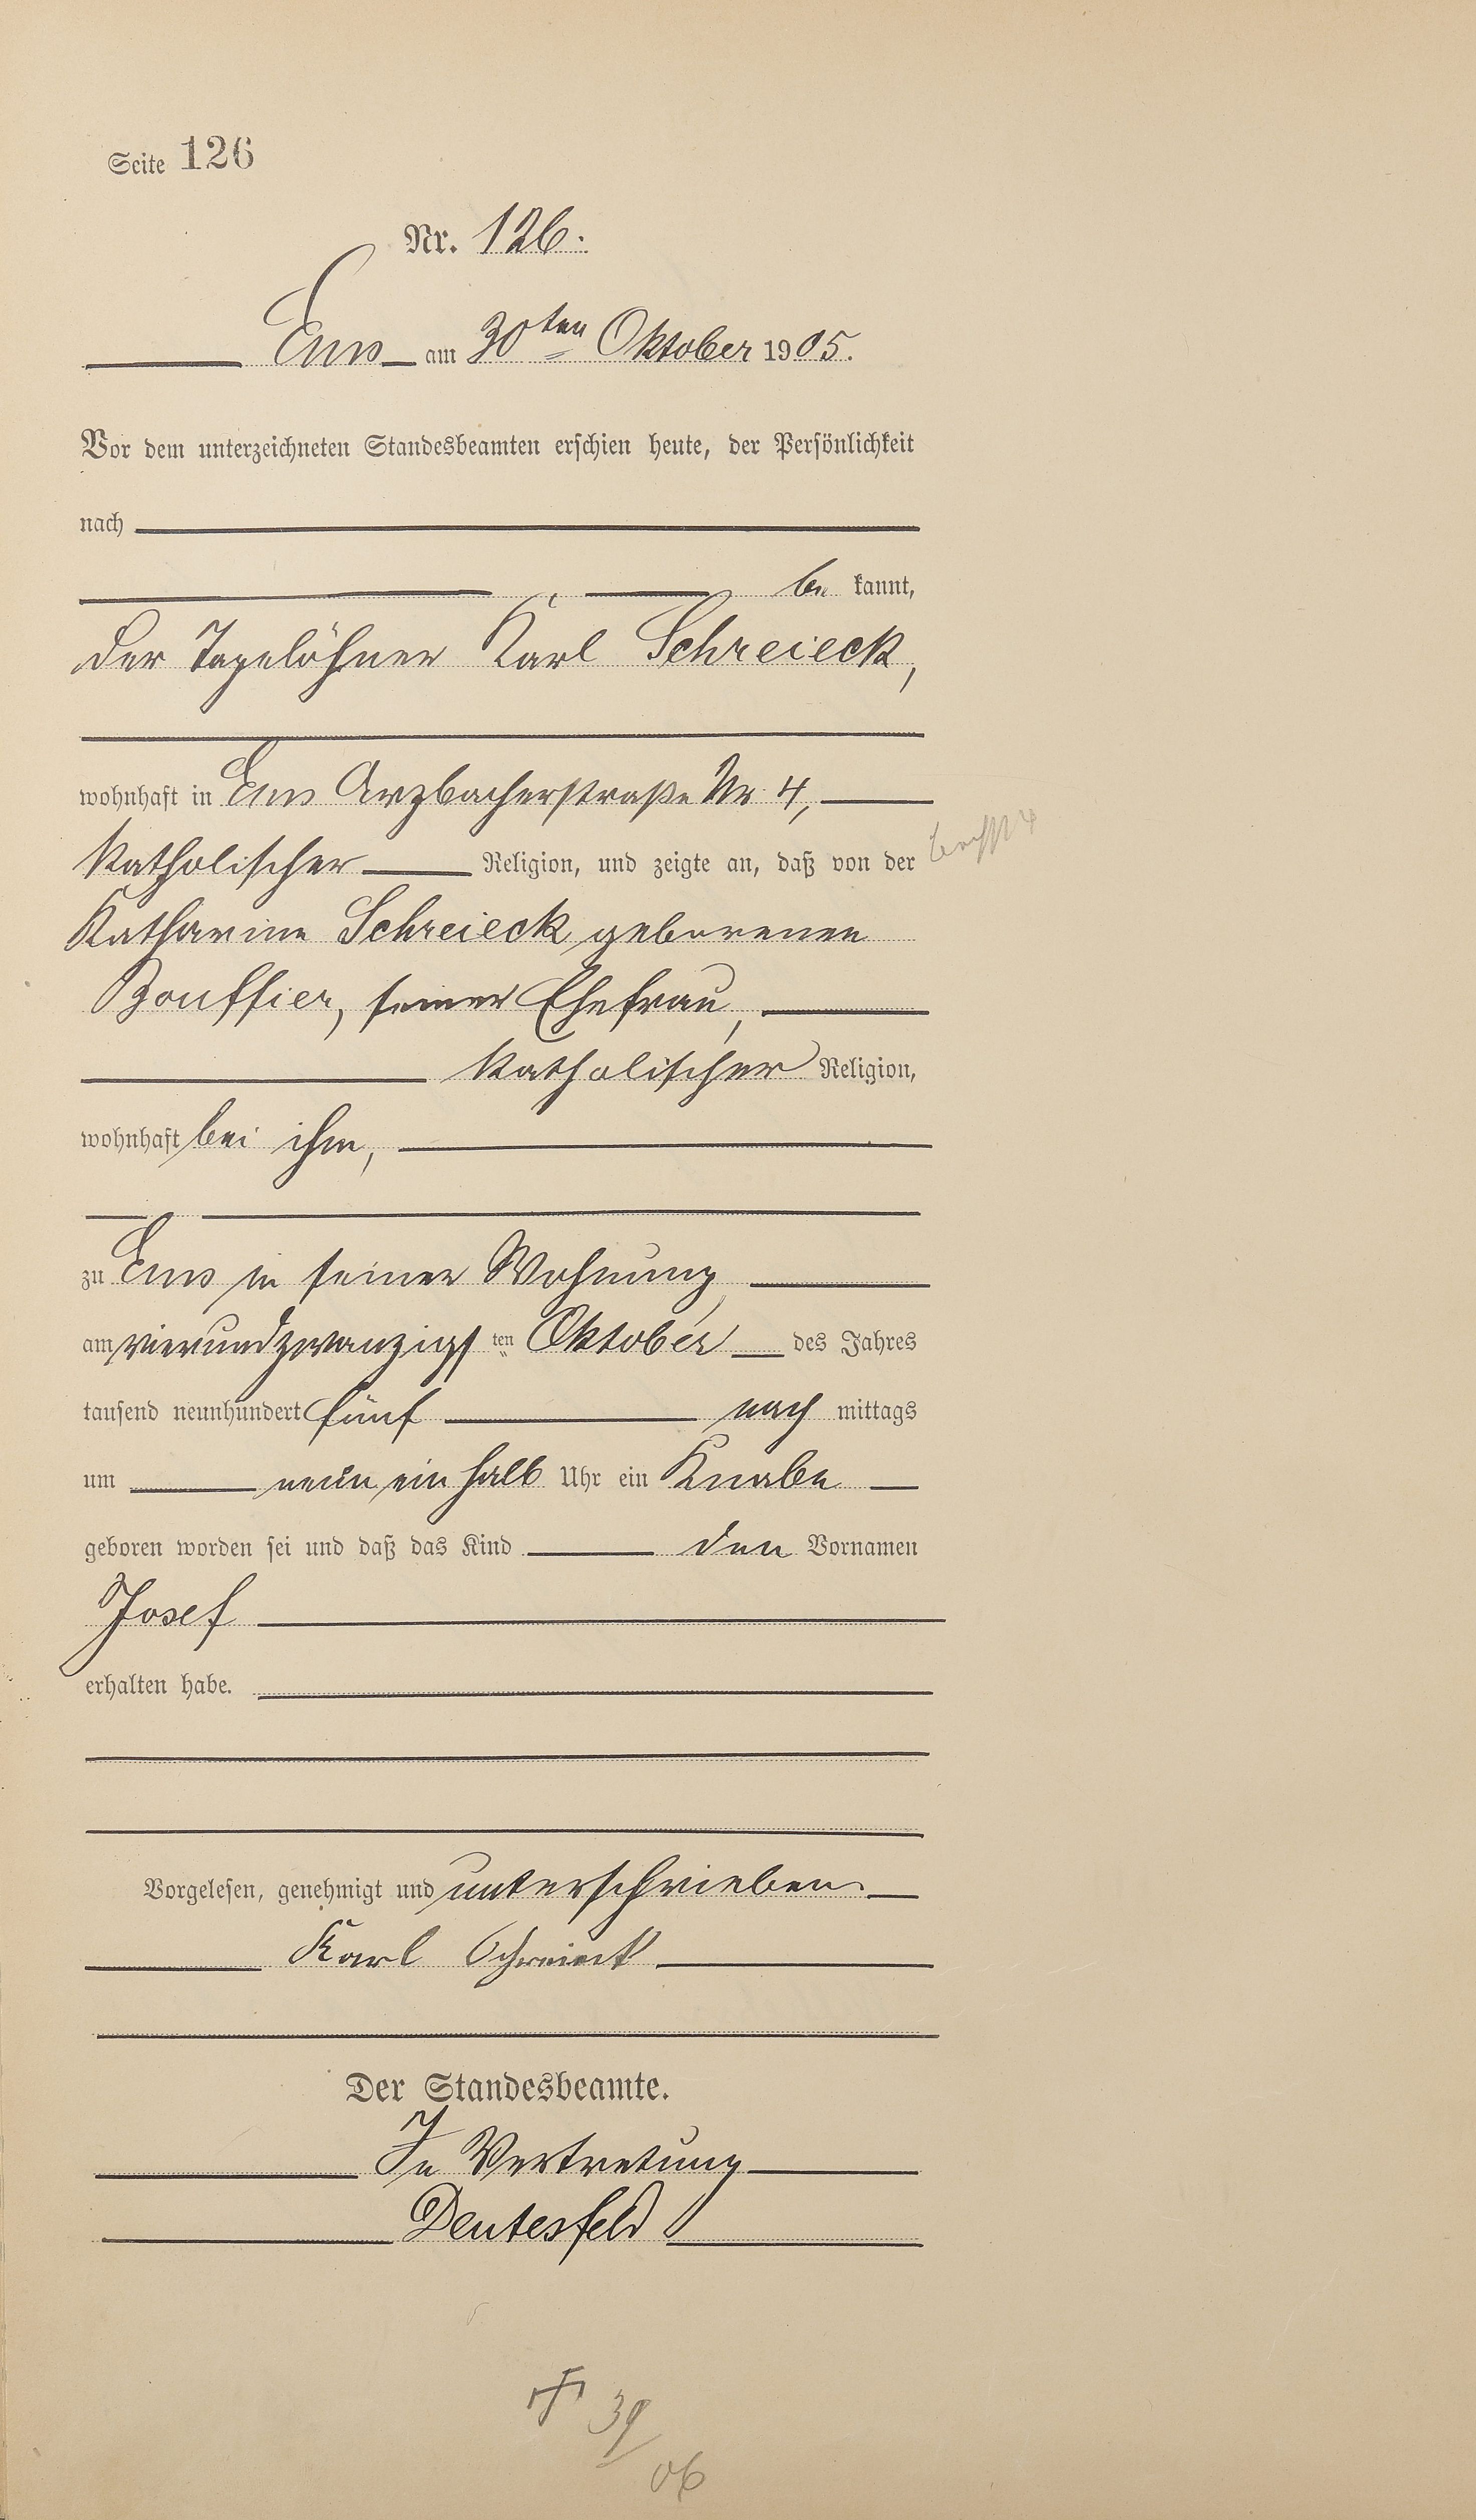 Seite 126
Nr. 126.
Ems am 30ten Oktober 1905.
Vor dem unterzeichneten Standesbeamten erschien heute, der Persönlichkeit
nach
be kannt,
der Tagelöhner Karl Schreieck,
wohnhaft in Ems Arzbacherstraße Nr. 4,
katholischer Religion, und zeigte an, daß von der
Katharina Schreieck geborenen
Bouffier, seiner Ehefrau,
katholischer Religion,
wohnhaft bei ihm,
zu Ems in seiner Wohnung,
am vierundzwanzigsten Oktober des Jahres
tausend neunhundert fünf nach mittags
um neun ein halb Uhr ein Knabe
geboren worden sei und daß das Kind den Vornamen
Josef
erhalten habe.
Vorgelesen, genehmigt und unterschrieben.
Karl Schreieck
Der Standesbeamte.
In Vertretung
Deutesfeld
39/06